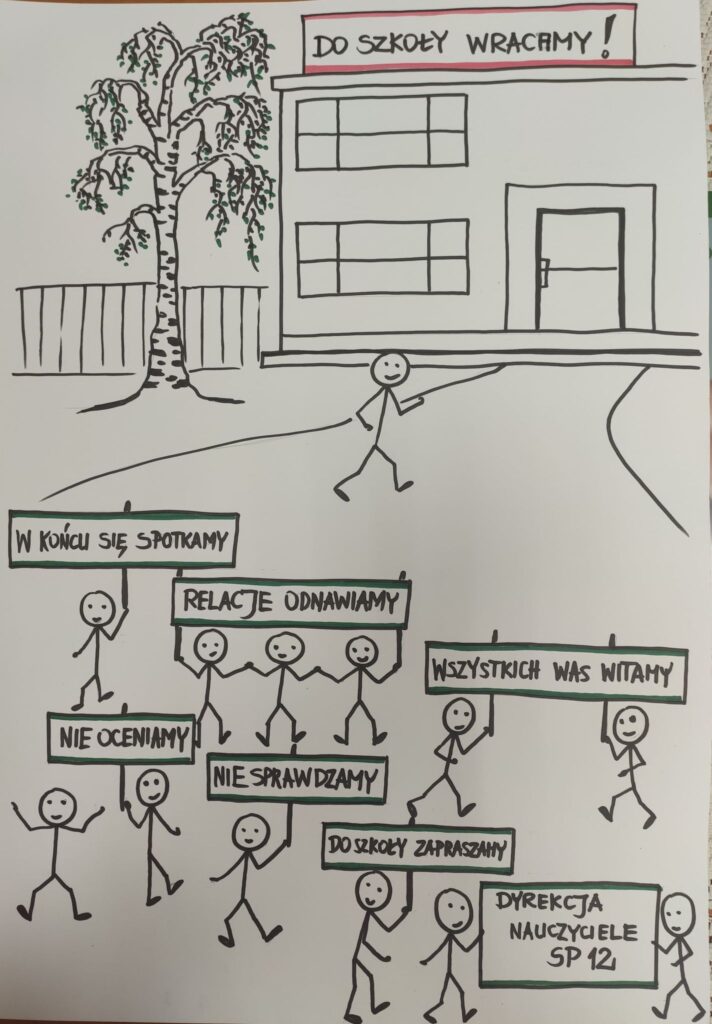 DO SZKOŁY WRACAMY!
W KOŃCU SIĘ SPOTKAMY
RELACJE ODNAWIAMY
WSZYSTKICH WAS WITAMY
NIE OCENIAMY
NIE SPRAWDZAMY
DO SZKOŁY ZAPRASZAMY
DYREKCJA
NAUCZYCIELE
SP 12